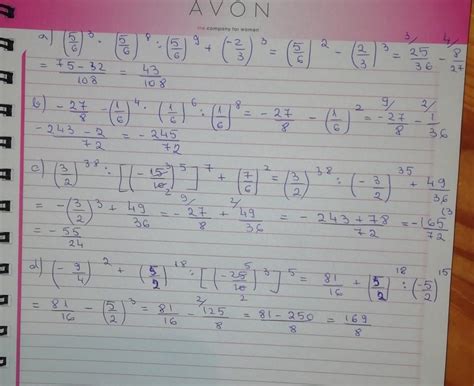 AVON
the company for women
a) (5/6)^3 · (5/6)^8 : (5/6)^9 + (-2/3)^3 = (5/6)^2 - (2/3)^3 = 25/36 - 8/27
= 75-32/108 = 43/108
b) -27/8 - (1/6)^4 · (1/6)^6 : (1/6)^8 = -27/8 - (1/6)^2 = -27/8 - 1/36
-243-2/72 = -245/72
c) (3/2)^38 : [(-15/10)^5]^7 + (7/6)^2 = (3/2)^38 : (-3/2)^35 + 49/36
= -(3/2)^3 + 49/36 = -27/8 + 49/36 = -243+78/72 = -165/72 (3
= -55/24
d) (-9/4)^2 + (5/2)^18 : [(-25/10)^3]^5 = 81/16 + (5/2)^18 : (-5/2)^15
= 81/16 - (5/2)^3 = 81/16 - 125/8 = 81-250/8 = 169/8